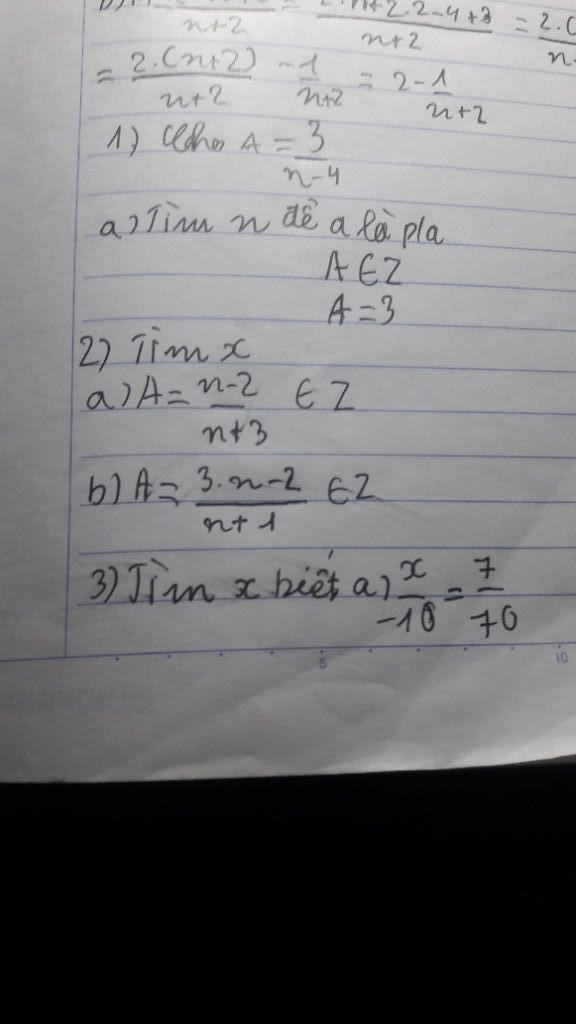 = 2.n+2.2-4+3/n+2 = 2.
n+2
= 2.(n+2)/n+2 - 1/n+2 = 2 - 1/n+2
1) Cho A = 3/n-4
a) Tìm n để a là pla
A ∈ Z
A = 3
2) Tìm x
a) A = n-2/n+3 ∈ Z
b) A = 3.n-2/n+1 ∈ Z
3) Tìm x biết a) x/-10 = 7/70
5 10